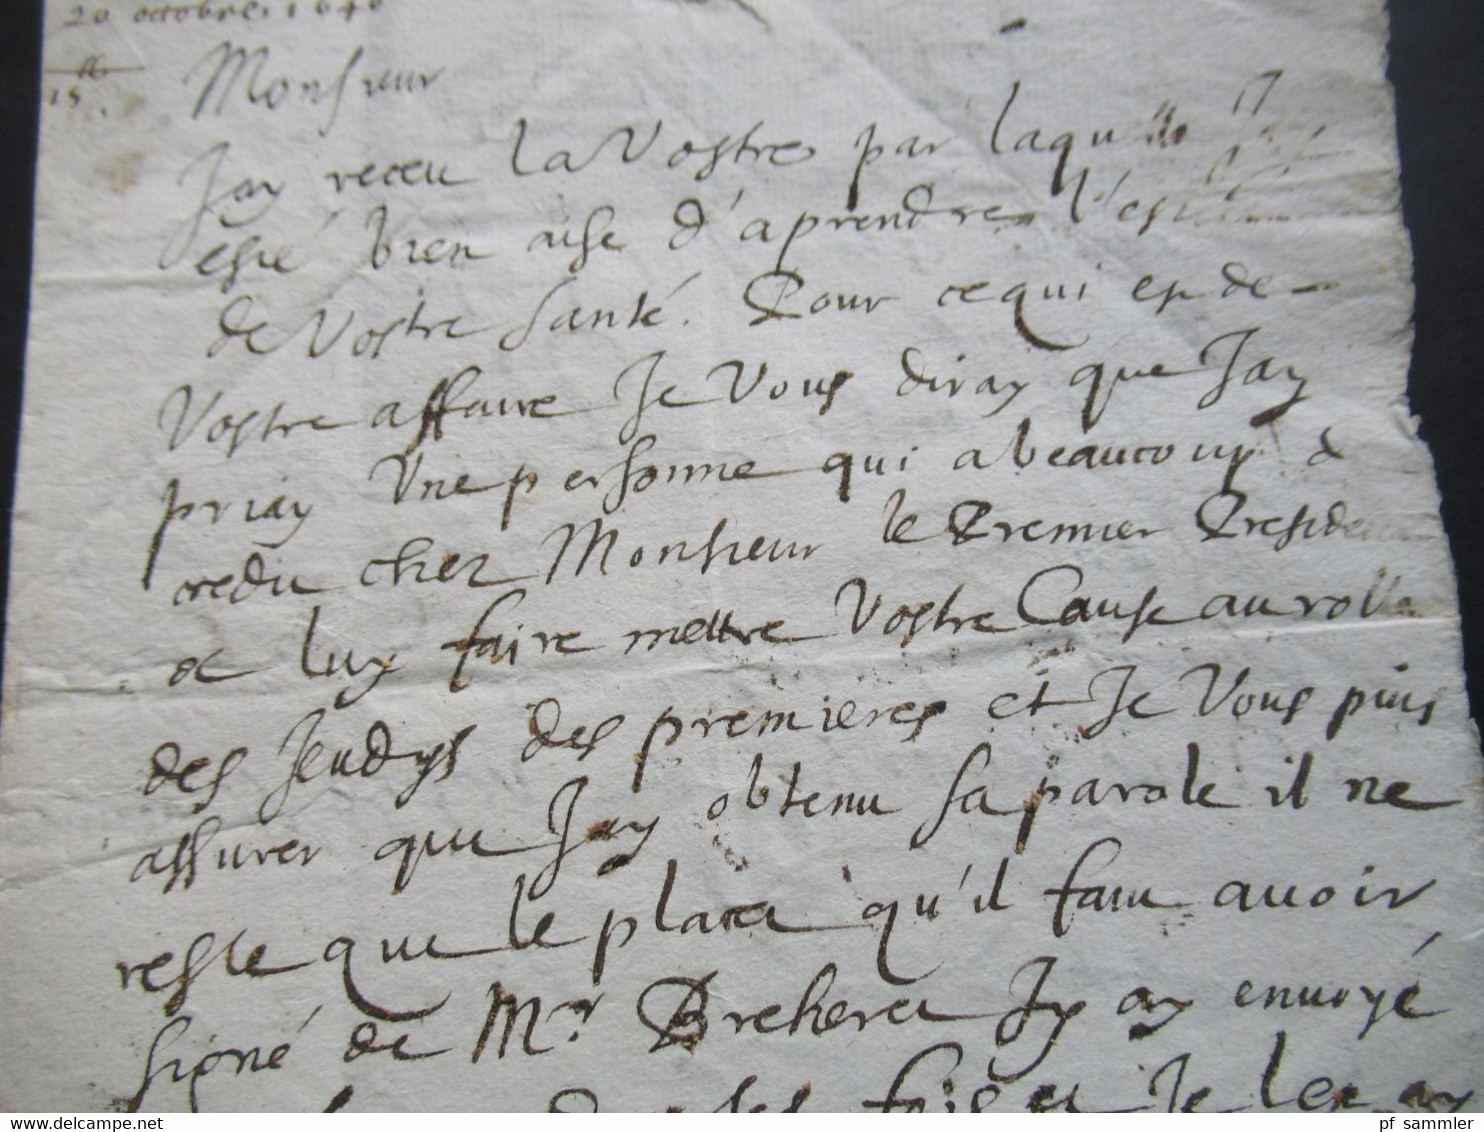 20 octobre 1640
15
Monsieur
Jay receu la Vostre par laquelle
esté bien aise d'aprendre
de Vostre santé. Pour ce qui est de
Vostre affaire Je Vous diray que Jay
priay Une personne qui a beaucoup de
credit chez Monsieur le Premier President
de luy faire mettre Vostre Cause au rolle
des Jeudys des premieres et Je Vous puis
assurer que Jay obtenu sa parole il ne
reste que le placet qu'il faut avoir
signé de Mr. Jy ay envoyé
fois et Je
pf sammler